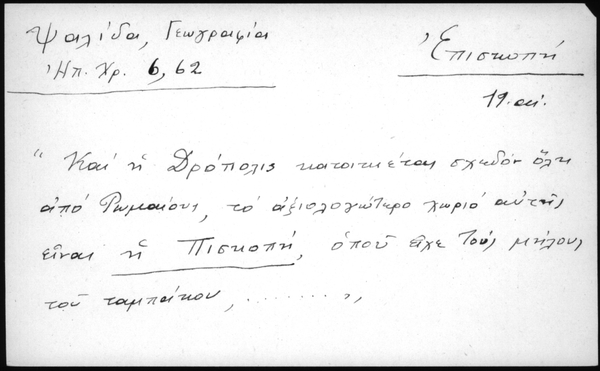 Ψαλίδα, Γεωγραφία
Ἠπ. Χρ. 6, 62
Ἐπισκοπή
19. αἰ.
"Καί ἡ Δρόπολις κατοικεῖται σχεδόν ὅλη
ἀπό Ρωμαίους, τό ἀξιολογώτερο χωριό αὐτῆς
εἶναι ἡ Πισκοπή, ὁποῦ εἶχε τούς μύλους
τοῦ ταμπάκου, ........ "